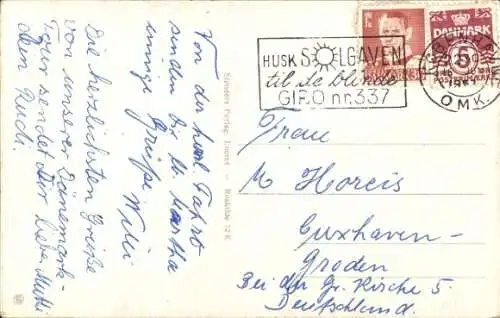 Von der herrl. Fahrt
senden Dir u. Martha
innige Grüße Willi
Die herzlichsten Grüße
von unserer Dänemark-
Tour sendet Dir liebe Mutti
dein Rudi.
HUSK SOLGAVEN
til de blinde
GIRO nr. 337
DANMARK
5
OMK.
Frau
M Horeis
Cuxhaven-
Groden
Bei der Gr. Kirche 5.
Deutschland.